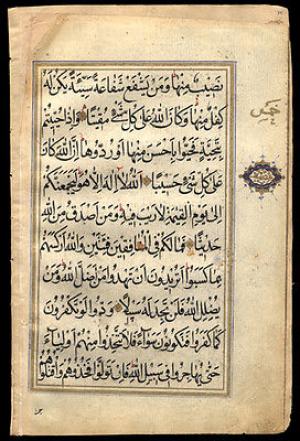 نَصِيبٌ مِنْهَا وَمَنْ يَشْفَعْ شَفَاعَةً سَيِّئَةً يَكُنْ لَهُ
كِفْلٌ مِنْهَا وَكَانَ اللهُ عَلَى كُلِّ شَيْءٍ مُقِيتًا وَاِذَا حُيِّيتُمْ
بِتَحِيَّةٍ فَحَيُّوا بِاَحْسَنَ مِنْهَا اَوْ رُدُّوهَا اِنَّ اللهَ كَانَ
عَلَى كُلِّ شَيْءٍ حَسِيبًا اَللهُ لَا اِلَهَ اِلَّا هُوَ لَيَجْمَعَنَّكُمْ
اِلَى يَوْمِ الْقِيمَةِ لَا رَيْبَ فِيهِ وَمَنْ اَصْدَقُ مِنَ اللهِ
حَدِيثًا فَمَا لَكُمْ فِي الْمُنَافِقِينَ فِئَتَيْنِ وَاللهُ اَرْكَسَهُمْ
بِمَا كَسَبُوا اَتُرِيدُونَ اَنْ تَهْدُوا مَنْ اَضَلَّ اللهُ وَمَنْ
يُضْلِلِ اللهُ فَلَنْ تَجِدَ لَهُ سَبِيلًا وَدُّوا لَوْ تَكْفُرُونَ
كَمَا كَفَرُوا فَتَكُونُونَ سَوَاءً فَلَا تَتَّخِذُوا مِنْهُمْ اَوْلِيَاءَ
حَتَّى يُهَاجِرُوا فِي سَبِيلِ اللهِ فَاِنْ تَوَلَّوْا فَخُذُوهُمْ وَاقْتُلُوهُمْ
خمس